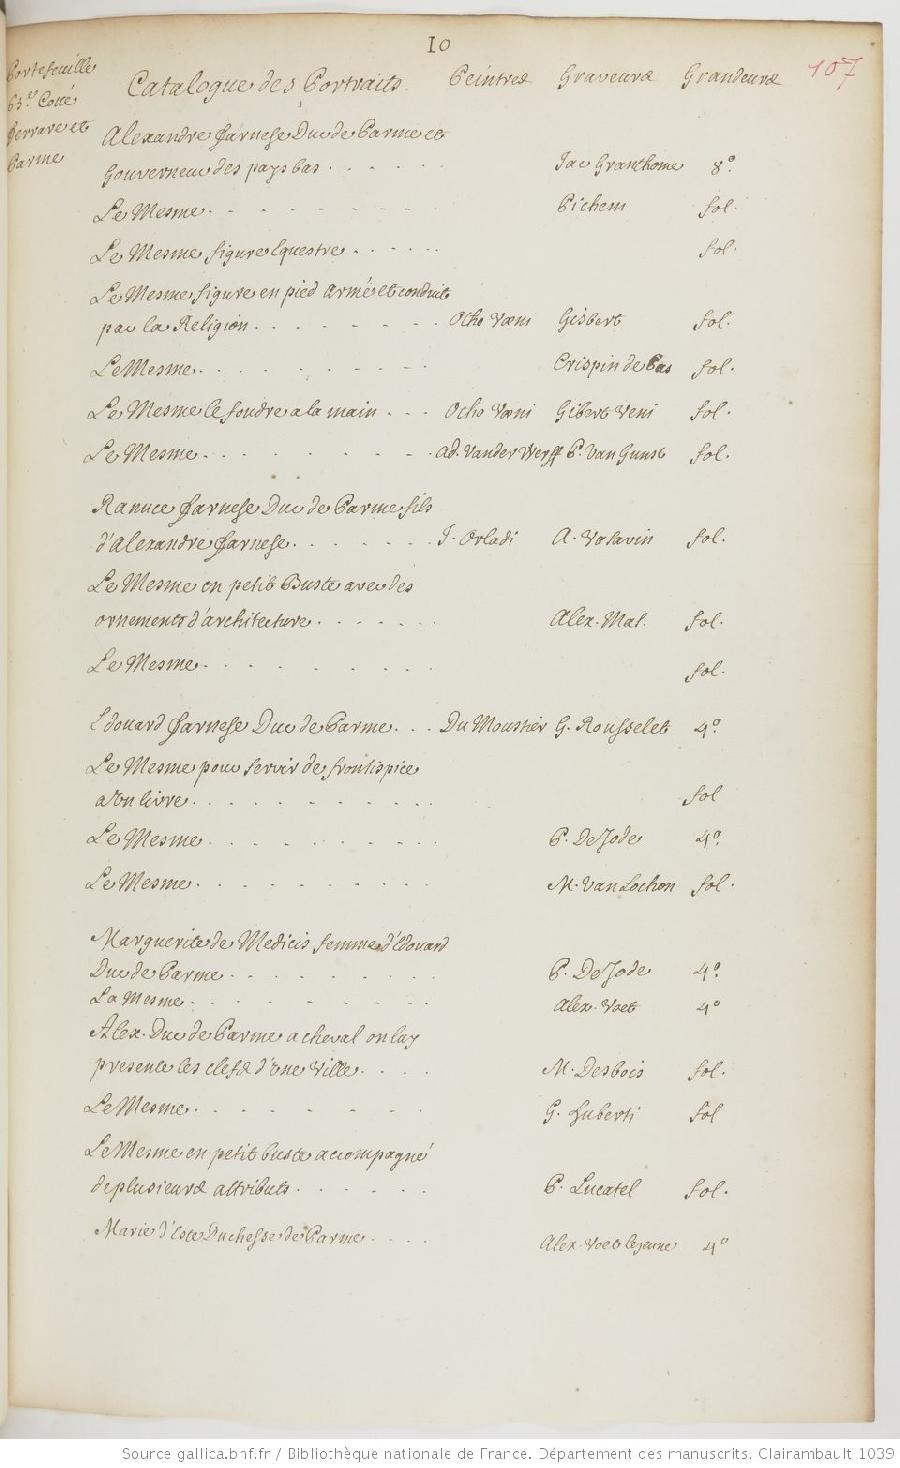 10
107
Portefeuille
63.e Cotté
ferrare et
Parme
Catalogue des Portraits. Peintres Graveurs Grandeurs
Alexandre farnese Duc de Parme et
Gouverneur des pays bas . . . . . . Jac Granthome 8.o
Le Mesme . . . . . . Pichem fol.
Le Mesme figure Equestre . . . . . . fol.
Le Mesme figure en pied armé et conduit
par la Religion . . . . . . Otho Væni Gisbert fol.
Le Mesme . . . . . . Crispin de Pas fol.
Le Mesme le foudre a la main . . . Otho Væni Gibert Veni fol.
Le Mesme . . . . . . ad. Vander Werff P. Van Gunst fol.
Ranuce farnese Duc de Parme fils
d'Alexandre farnese . . . . . . J. Orladi A. Vatavin fol.
Le Mesme en petit Buste avec des
ornements d'architecture . . . . . . Alex. Mat. fol.
Le Mesme . . . . . . fol.
Edouard farnese Duc de Parme . . . Du Moustier G. Rousselet 4.o
Le Mesme pour servir de frontispice
a un livre . . . . . . fol
Le Mesme . . . . . . P. De Jode 4.o
Le Mesme . . . . . . M. Van Lochon fol.
Marguerite de Medicis femme d'Edouard
Duc de Parme . . . . . . P. De Jode 4.o
La Mesme . . . . . . Alex. Voet 4o
Alex. Duc de Parme a cheval on luy
presente les clefs d'une Ville . . . . M. Desbois fol.
Le Mesme . . . . . . G. Huberti fol
Le Mesme en petit buste accompagné
de plusieurs attributs . . . . . . P. Lucatel fol.
Marie d'Este Duchesse de Parme . . . . Alex. Voet le jeune 4o
Source gallica.bnf.fr / Bibliothèque nationale de France. Département des manuscrits. Clairambault 1039